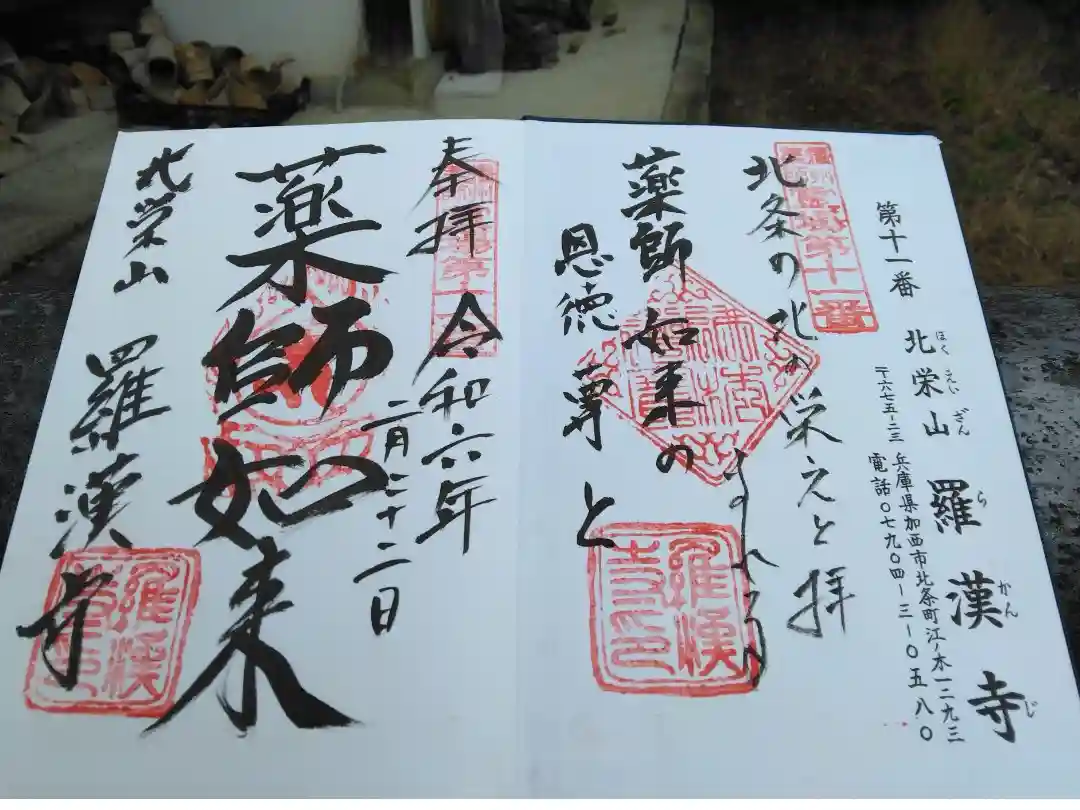 第十一番
北栄山 羅漢寺
ほくえいざん らかんじ
〒六七五-二三 兵庫県加西市北条町江ノ木一二九三
電話〇七九〇四-三-〇五八〇
第十一番
北条の北の栄えと拝
薬師如来の
恩徳尊と
羅漢寺印
奉拝 令和六年
二月二十二日
薬師如来
北栄山 羅漢寺
羅漢寺印